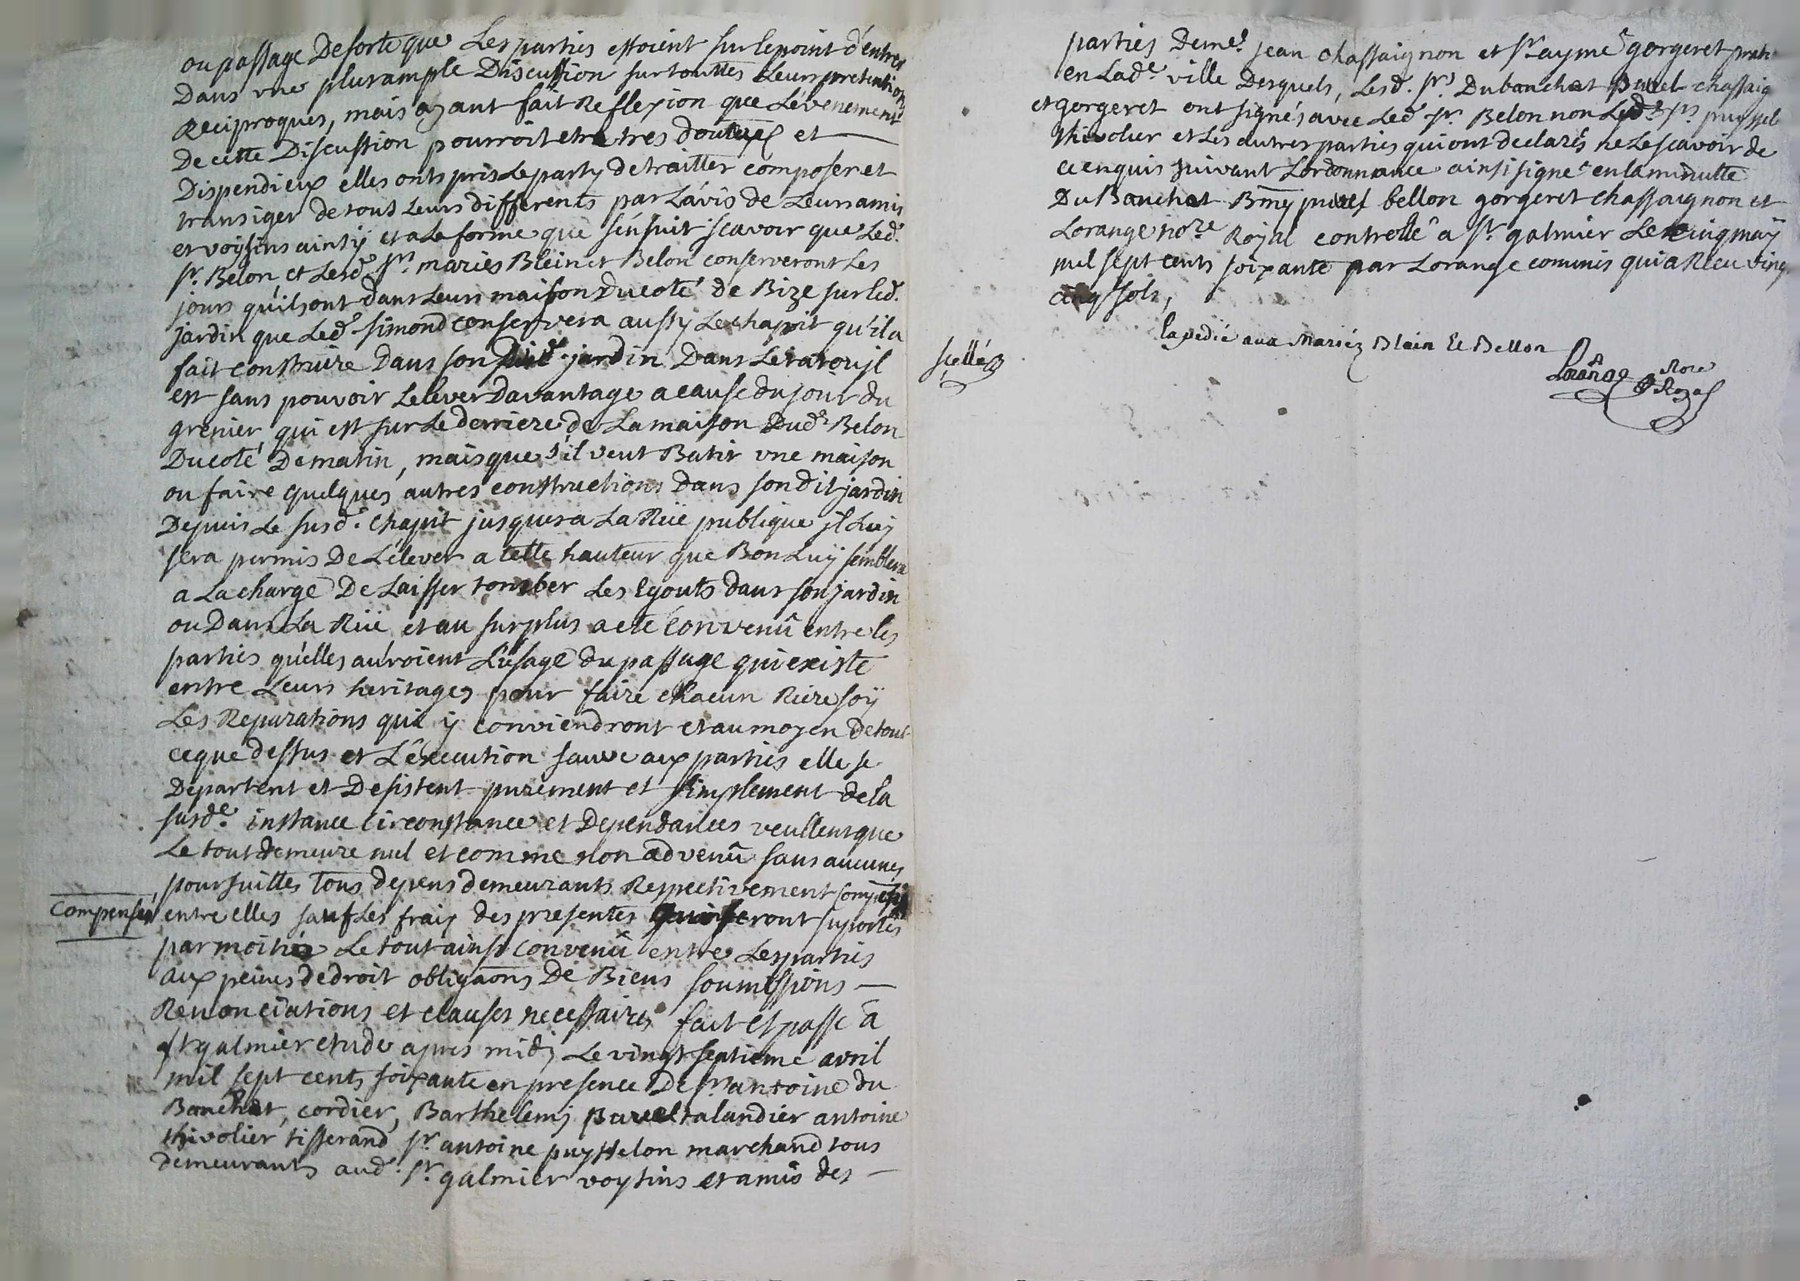 ou passage De sorte que Les parties estoient sur le point d'entrer
Dans une plus ample Discussion sur touttes Leurs pretentions
Reciproques, mais ayant fait Reflexion que L'évenement
de cette Discussion pourroit etre tres douteux et
Dispendieux elles onts pris Le party de traitter composer et
transiger de tous Leurs differents par L'avis de Leurs amis
et voysins ainsÿ et a Le forme que s'ensuit scavoir que Led.
Sr. Belon, et Lesd. Srs. mariés Blein et Belon conserveront Les
jours qu'ils ont dans Leurs maison Du coté de Bize sur led.
jardin que Led. simond conservera aussy Le chapit qu'il a
fait construire Dans son jardin Dans
est sans pouvoir L'elever Davantage a cause du jour du
grenier, qui est sur Le derriere de La maison Dud. Belon
Du coté De matin, mais que s'il veut Batir une maison
ou faire quelques autres constructions Dans son dit jardin
Depuis Le susd. chapit jusques a La Rüe publique jl Luy
sera permis De L'elever a telle hauteur que Bon Luÿ semblera
a La charge De Laisser tomber Les Egouts dans son jardin
ou Dans La Rüe, et au surplus a eté convenû entre les
parties qu'elles auroient L'usage du passage qui existe
entre Leurs heritages pour faire chacun Riere soÿ
Les Reparations qui ÿ conviendront et au moyen de tout
ce que dessus et L'éxecution sauve aux parties elle se
Départent et Desistent purement et simplement de la
susde. instance circonstance et Dependances veullent que
Le tout demeure nul et comme non advenû sans aucunes
poursuittes Tous depens demeurants Respectivement
Compensés
entre elles sauf Les frais des presentes qui seront suportés
par moitiés Le tout ainsi convenû entre Les parties
aux peines de droit obligaôns De Biens soumissions —
Renonciations et clauses necessaires fait et passé a
St galmier etude apres midy Le vingt septieme avril
mil sept cents soixante en presence De Sr. antoine du
Banchat, cordier, Barthelemj talandier antoine
thivolier tisserand Sr. antoine puysselon marchand tous
demeurants aud. St. galmier voysins et amis des —
parties de me. jean chassaignon et Sr aymé gorgeret
en Lade. ville Desquels, Lesd. Srs. Dubanchat chassaig
et gorgeret ont signés avec Led. Sr. Belon non Lesd. Srs.
thivolier et Les autres parties qui ont declarés ne Le scavoir de
ce enquis suivant L'ordonnance ainsi signé en la minutte
Du Banchat bellon gorgeret chassaignon et
Lorange nore Royal controllé a St. galmier Le cinq maÿ
mil sept cents soixante par Lorange commis qui a Recu
cinq sols,
Expedié aux Mariéz Blain et Bellon
Scellé
Lorange Nore
Royal